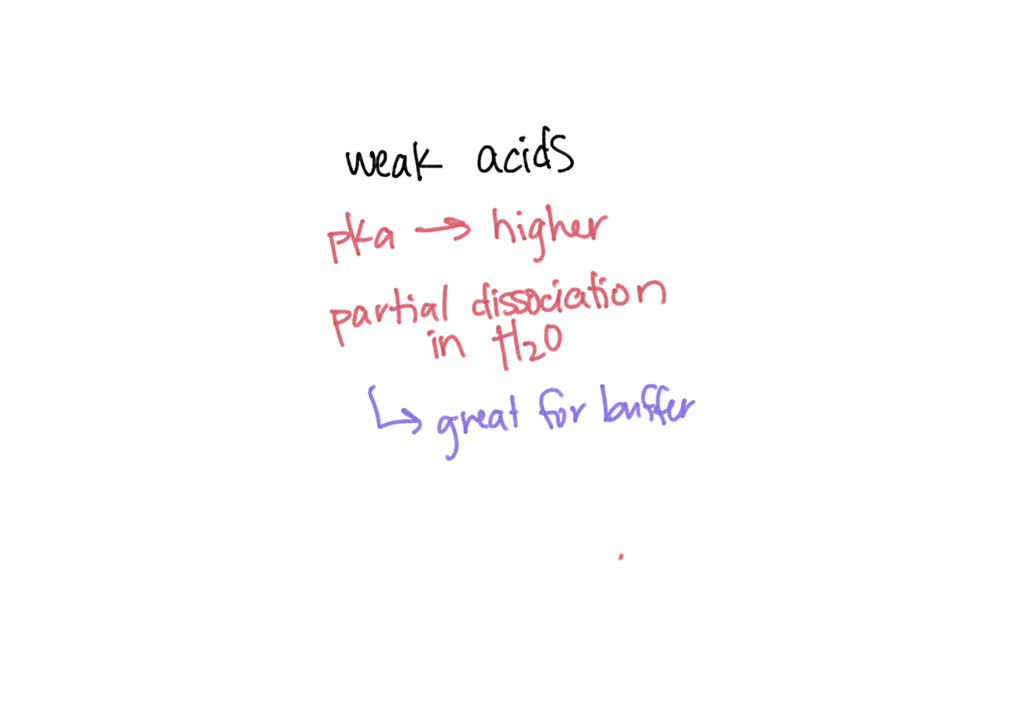 weak acids
pka → higher
partial dissociation
in H₂O
↳ great for buffer